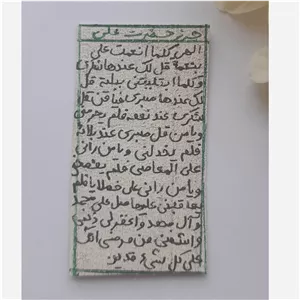 حرز حضرت علی
الهی کلما انعمت علی
بنعمة قل لک عندها شکری
و کلما ابتلیتنی ببلیة قل
لک عندها صبری فیا من قل
شکری عند نعمه فلم یحرمنی
و یا من قل صبری عند بلائه
فلم یخذلنی و یا من رانی
علی المعاصی فلم یفضحنی
و یا من رانی علی خطایا فلم
یعاقبنی علیها صل علی محمد
و آل محمد و اغفرلی ذنبی
و اشفنی من مرضی انک
علی کل شیء قدیر